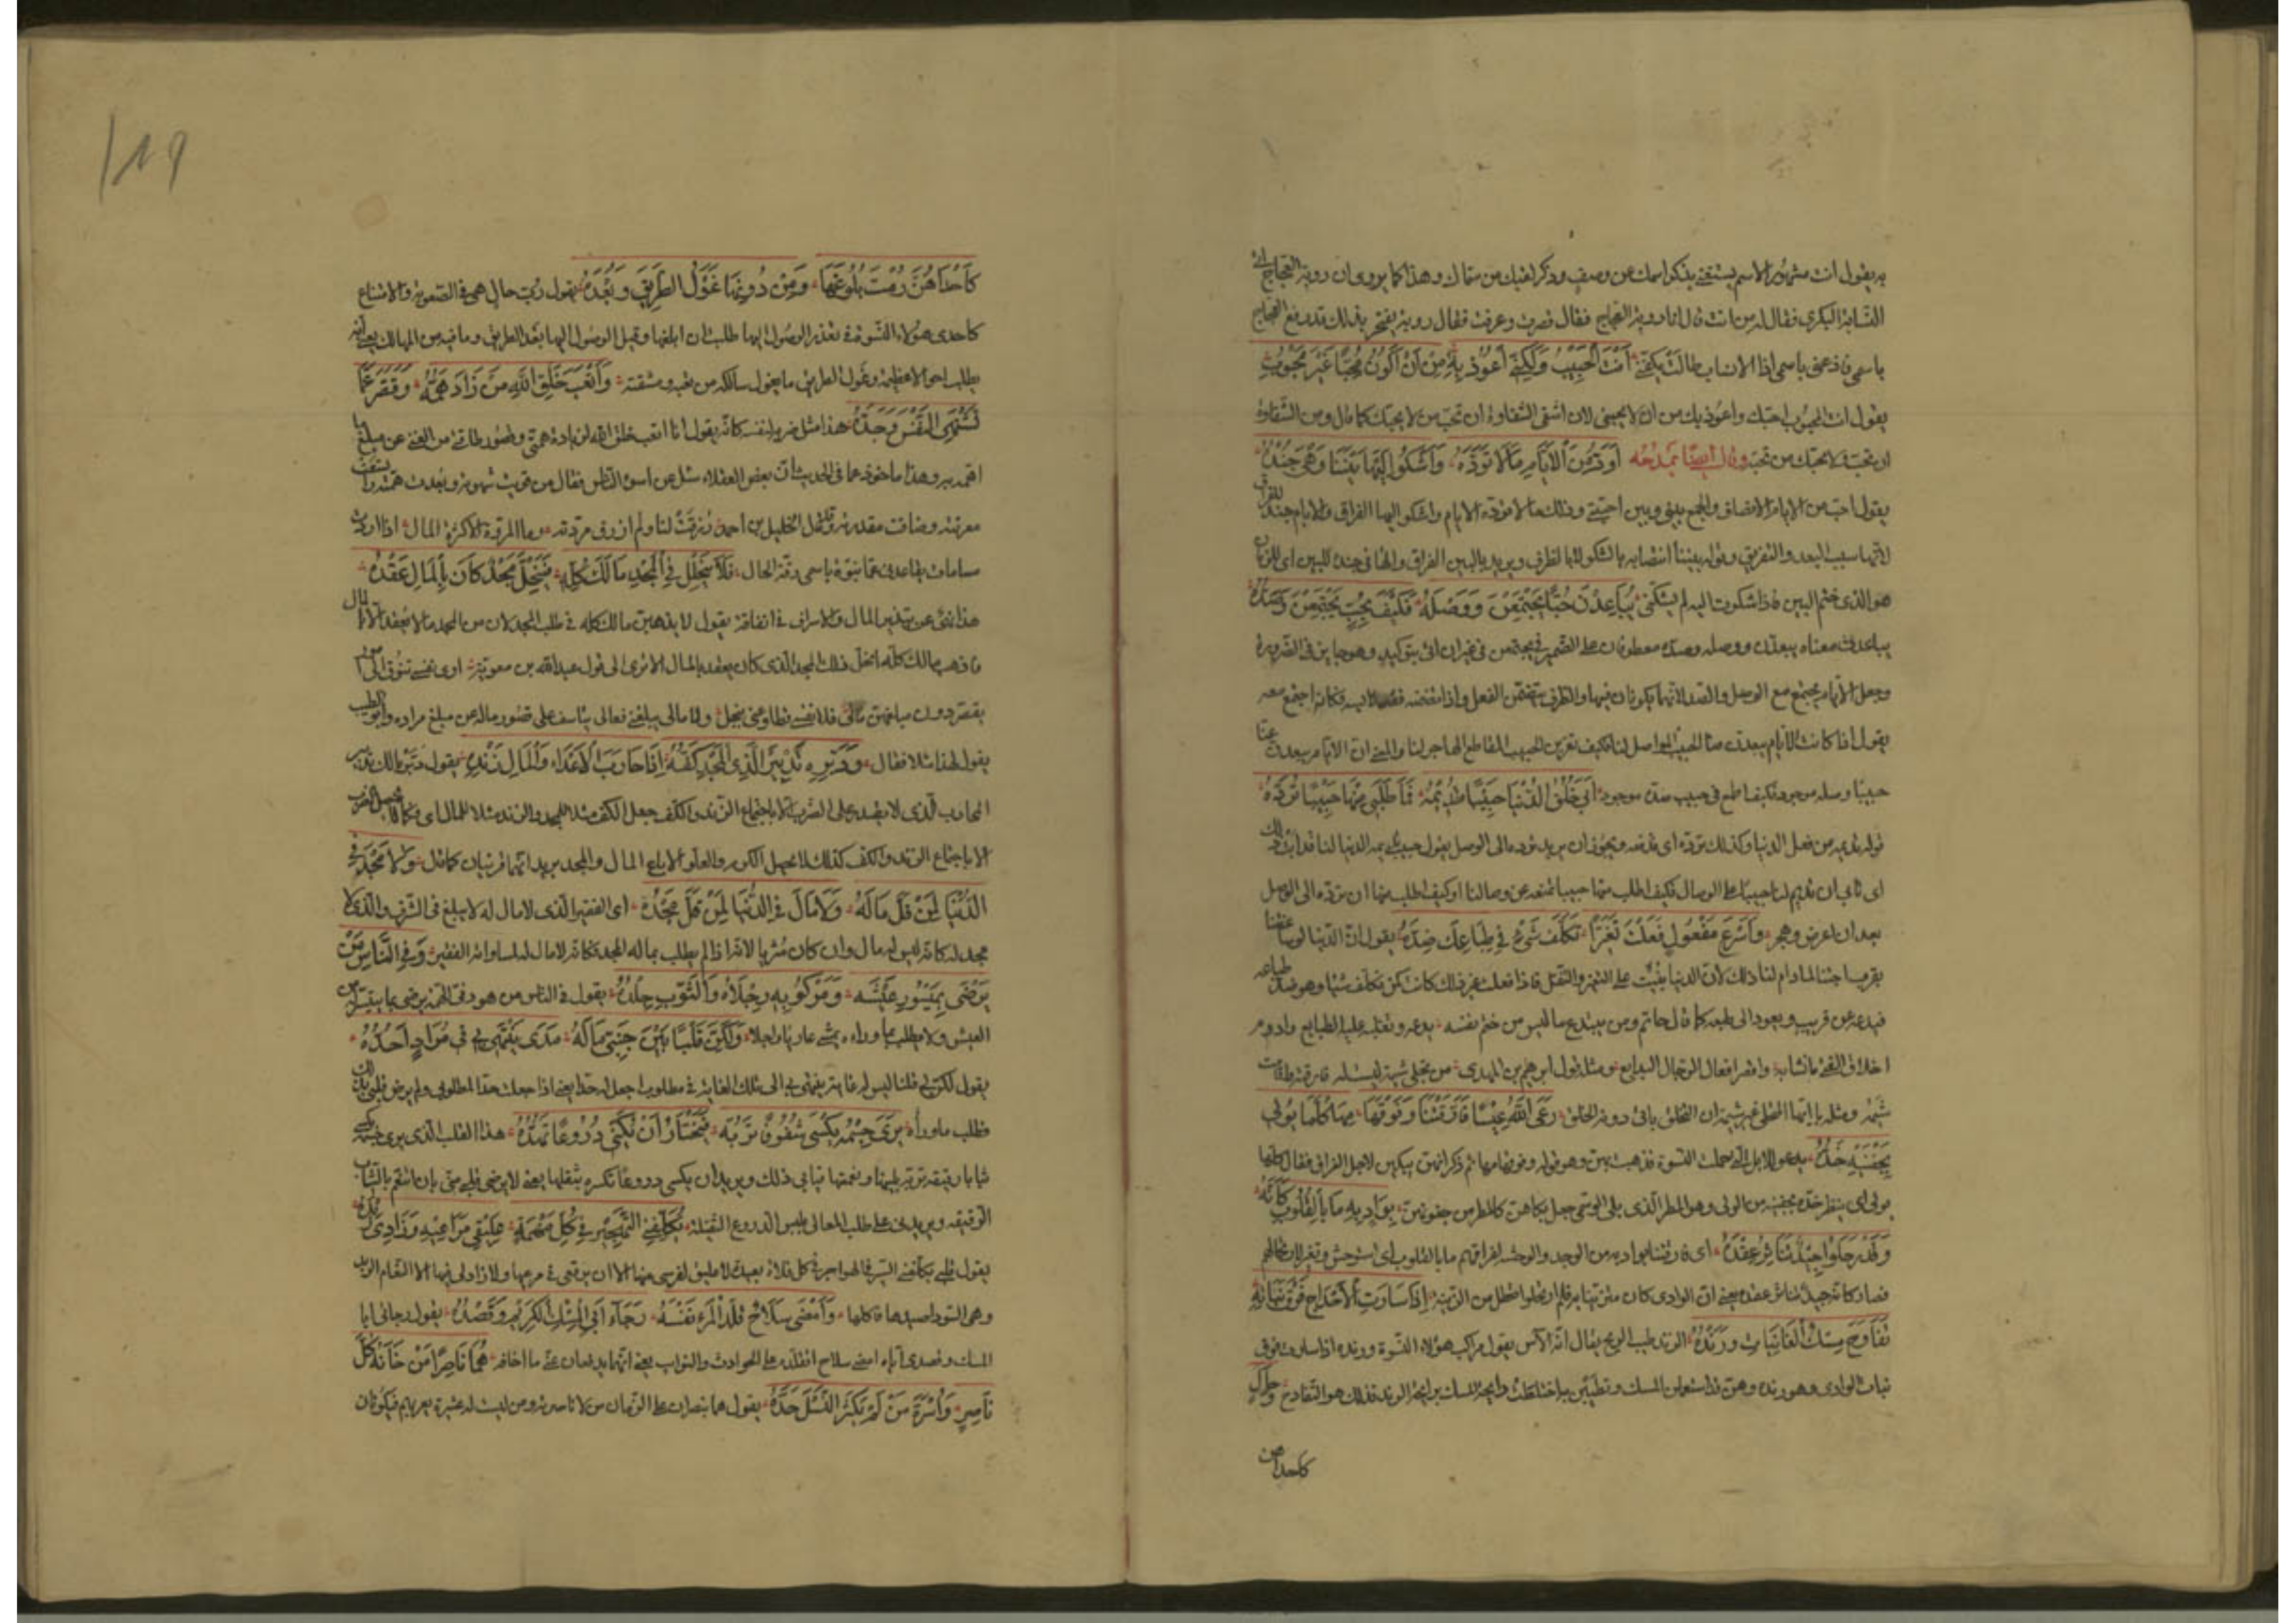 به يقول انت مشهور الاسم يستغنى بذكر اسمك عن وصف وذكر لقبك من سماك وهذا كما يروى ان روبة بن العجاج اتى
النسابة البكرى فقال له من انت قال انا روبة بن العجاج فقال قصرت وعرفت فقال روبة يفتخر بذلك قد رفع العجاج
باسمى فادعنى باسمى اذا الانساب طالت يكفنى أَنْتَ الْحَبِيْبُ وَلَكِنِّى أَعُوْذُ بِهِ مِنْ أَنْ أَكُوْنَ مُحِبًّا غَيْرَ مَحْبُوْبِ
يقول انت المحبوب احبك واعوذ بك من ان لا يحبنى لان اشقى الشقاوة ان تحب من لا يحبك كما قال ومن الشقاوة
ان تحب ولا يحبك من تحبه وقال ايضًا يمدحه أَوَدُّ مِنَ الْأَيَّامِ مَا لَا تَوَدُّهُ وَأَشْكُو إِلَيْهَا بَيْنَنَا وَهْىَ جُنْدُهُ
يقول احب من الايام الانصاف والجمع بينى وبين احبتى وذلك ما لا تودّه الايام واشكو اليها الفراق والايام جند الفراق
لانها سبب البعد والتفريق وقوله بيننا انتصابه بأشكو لا بالظرف ويريد بالبين الفراق والهاء فى جنده للبين اى للزمان
هو الذى حتم البين فاذا شكوت اليه لم يشكنى يُبَاعِدْنَ حِبًّا يَجْتَمِعْنَ وَوَصْلُهُ فَكَيْفَ بِحِبٍّ يَجْتَمِعْنَ وَصَدُّهُ
يباعدن معناه يبعدن ووصله وصده معطوفان على الضمير فى يجتمعن من غير ان اتى بتوكيد وهو جايز فى الضرورة
وجعل الايام تجتمع مع الوصل والصد لانهما يكونان فيها والظرف يتضمن الفعل واذا تضمنه فقد لابسه فكانه اجتمع معه
يقول اذا كانت الايام يبعدن منا الحبيب المواصل لنا فكيف تقربن الحبيب المقاطع الهاجر لنا والمعنى ان الايام يبعدن عنا
حبيبًا وصله موجود فكيف اطمع فى حبيب صده موجود أَبَى خُلُقُ الدُّنْيَا حَبِيْبًا تُدِيْمُهُ فَمَا طَلَبِى مِنْهَا حَبِيْبًا تَرُدُّهُ
قوله تديمه من فعل الدنيا وكذلك تردّه اى تدفعه ويجوز ان يريد تردّه الى الوصل يقول حبيب تديمه الدنيا لنا قد ابت ذلك
اى تأبى ان تديم لنا حبيبًا على الوصال فكيف اطلب منها حبيبا تمنعه عن وصالنا او كيف اطلب منها ان تردّه الى الوصل
بعد ان اعرض وهجر وَأَسْرَعُ مَفْعُوْلٍ فَعَلْتَ تَغَيُّرًا تَكَلُّفُ شَىْءٍ فِى طِبَاعِكَ ضِدُّهُ يقول ان الدنيا لو ساعفتنا
بقرب احبتنا لما دام لنا ذلك لان الدنيا بنيت على التغير والتنقل فاذا فعلت غير ذلك كانت كمن تكلف شيئا وهو ضد طباعه
فيدعه عن قريب ويعود الى طبعه كما قال حاتم ومن يبتدع ما ليس من خيم نفسه يدعه وتغلبه عليه الطبايع وادوم
اخلاق الفتى ما نشا به واقصر افعال الرجال البدايع ومثله قول ابرهيم بن المهدى من تحلى شيمة ليست له فارقته واقامت
شيمه ومثله يا ايها المتحلى غير شيمته ان التخلق يأتى دونه الخلق رَعَى اللهُ عِيْسًا فَارَقَتْنَا وَفَوْقَهَا مَهًا كُلُّهَا يُوْلَى
بِجَفْنَيْهِ خَدُّهُ يدعو للابل التى حملت النسوة فذهبت بهن وهو قوله وفوقها مها ثم ذكر انهن يبكين لاجل الفراق فقال كلها
يولى اى يمطر خده بجفنيه من الولى وهو المطر الذى يلى الوسمى جعل بكاهن كالمطر من جفونهن بِوَادٍ بِهِ مَا بِالْقُلُوْبِ كَأَنَّهُ
وَقَدْ رَحَلُوْا جِيْدٌ تَنَاثَرَ عِقْدُهُ اى فارقتنا بواد به من الوجد والوحشة لفراقهم ما بالقلوب اى استوحش وتغير لارتحالهم
فصار كانه جيد تناثر عقده يعنى ان الوادى كان متزينا بهم فلما ارتحلوا تعطل من الزينة إِذَا سَارَتِ الْأَحْدَاجُ فَوْقَ نَبَاتِهِ
تَفَاوَحَ مِسْكُ الْغَانِيَاتِ وَرَنْدُهُ الرند طيب الريح يقال انه الآس يقول مراكب هؤلاء النسوة ورنده اذا سارت فوق
نبات الوادى وهو رنده وهن قد استعملن المسك وتطيبن به اختلطت رايحة المسك برايحة الرند فذلك هو التفاوح وَحَالٍ
كاحداهن
كَإِحْدَاهُنَّ رُمْتُ بُلُوْغَهَا وَمِنْ دُوْنِهَا غَوْلُ الطَّرِيْقِ وَبُعْدُهُ يقول رب حال هى فى الصعوبة والامتناع
كاحدى هؤلاء النسوة تعذر الوصول اليها طلبت ان ابلغها وقبل الوصول اليها بعد الطريق وما فيه من المهالك يعنى انه
يطلب احوالا عظيمة وغول الطريق ما يغول سالكه من تعبه ومشقته وَأَتْعَبُ خَلْقِ اللهِ مَنْ زَادَ هَمُّهُ وَقَصَّرَ عَمَّا
تَشْتَهِى النَّفْسُ وُجْدُهُ هذا مثل ضربه لنفسه كانه يقول انا اتعب خلق الله لزيادة همتى وقصور طاقتى من الغنى عن مبلغ ما
اهم به وهذا ماخوذ مما فى الحديث ان بعض العقلاء سئل عن اسوء الناس فقال من قويت شهوته وبعدت همته واتسعت
معرفته وضاقت مقدرته وقول الخليل بن احمد رُزِقْتُ لبا ولم ارزق مروته وما المروة الا كثرة المال اذا اردت
مساماة تقاعدنى عما ينوّه باسمى رقة الحال فَلَا يَنْحَلِلْ فِى الْمَجْدِ مَالُكَ كُلُّهُ فَيَنْحَلَّ مَجْدٌ كَانَ بِالْمَالِ عَقْدُهُ
هذا نهى عن تبذير المال والاسراف فى انفاقه يقول لا يذهبن مالك كله فى طلب المجد لان من المجد ما لا يعقد الا بالمال
فاذا ذهب مالك كله انحل ذلك المجد الذى كان يعقد بالمال الا ترى الى قول عبدالله بن معوية ارى نفسى تتوق الى امور
يقصر دون مبلغهن مالى فلا نفسى تطاوعنى ببخل ولا مالى يبلغنى فعالى يتاسف على قصور ماله عن مبلغ مراده وابو الطيب
يقول لهذا مثلا فقال وَدَبِّرْهُ تَدْبِيْرَ الَّذِى الْمَجْدُ كَفُّهُ إِذَا حَارَبَ الْأَعْدَاءَ وَالْمَالُ زَنْدُهُ يقول دبر مالك تدبير
المحارب الذى لا يقدر على الضرب الا باجتماع الزند والكف جعل الكف مثلا للمجد والزند مثلا للمال اى فكما لا يحصل الضرب
الا باجتماع الزند والكف كذلك لا يحصل الكرم والعلو الا مع المال والمجد يريد انهما قرينان كما قال وَلَا مَجْدَ فِى
الدُّنْيَا لِمَنْ قَلَّ مَالُهُ وَلَا مَالَ فِى الدُّنْيَا لِمَنْ قَلَّ مَجْدُهُ اى الفقير الذى لا مال له لا يبلغ فى الشرف والذى لا
مجد له كانه ليس له مال وان كان مثريا لانه اذا لم يطلب بماله المجد فكانه لا مال له لمساواته الفقير وَفِى النَّاسِ مَنْ
يَرْضَى بِمَيْسُوْرِ عَيْشِهِ وَمَرْكُوْبُهُ رِجْلَاهُ وَالثَّوْبُ جِلْدُهُ يقول فى الناس من هو دنى الهمة يرضى بما تيسر له من
العيش ولا يطلب ما وراءه يمشى عاريا راجلا وَلَكِنَّ قَلْبًا بَيْنَ جَنْبَىَّ مَالَهُ مَدًى يَنْتَهِى بِى فِى مُرَادٍ أَحُدُّهُ
يقول لكن لى قلبا ليس له غاية ينتهى بى الى تلك الغاية فى مطلوب اجعل له حدا يعنى اذا جعلت حدا لمطلوبى ولم يرض قلبى بذلك
وطلب ما وراه يَرَى جِسْمَهُ يُكْسَى شُفُوْفًا تَرُبُّهُ فَيَخْتَارُ أَنْ يُكْسَى دُرُوْعًا تَهُدُّهُ هذا القلب الذى يرى جسمه يكسى
ثيابا رقيقة تربه بلينها ونعمتها فيأبى ذلك ويريد ان يكسى دروعًا تكسره بثقلها يعنى لا يرضى قلبى منى بان اتنعم بالثياب
الرقيقة ويريدنى على طلب المعالى بلبس الدروع الثقيلة يُكَلِّفُنِى التَّهْجِيْرَ فِى كُلِّ مَهْمَهٍ عَلِيْقِى مَرَاعِيْهِ وَزَادِى رُبْدُهُ
يقول قلبى يكلفنى السير فى الهواجر فى كل فلاة بعيدة لا عليق لفرسى فيها الا ان يرتعى فى مرعيها ولا زاد لى فيها الا النعام الربد
وهى السود اصيدها فآكلها وَأَمْضَى سِلَاحٍ قَلَّدَ الْمَرْءُ نَفْسَهُ رَجَاءُ أَبِى الْمِسْكِ الْكَرِيْمِ وَقَصْدُهُ يقول رجائى ابا
المسك وقصدى اياه امضى سلاح اتقلده على الحوادث والنوايب يعنى انهما يدفعان عنى ما اخافه هُمَا نَاصِرَا مَنْ خَانَهُ كُلُّ
نَاصِرٍ وَأُسْرَةُ مَنْ لَمْ يُكْثِرِ النَّسْلَ جَدُّهُ يقول هما ينصران على الزمان من لا ناصر له ومن ليست له عشيرة يعز بهم فيكونان